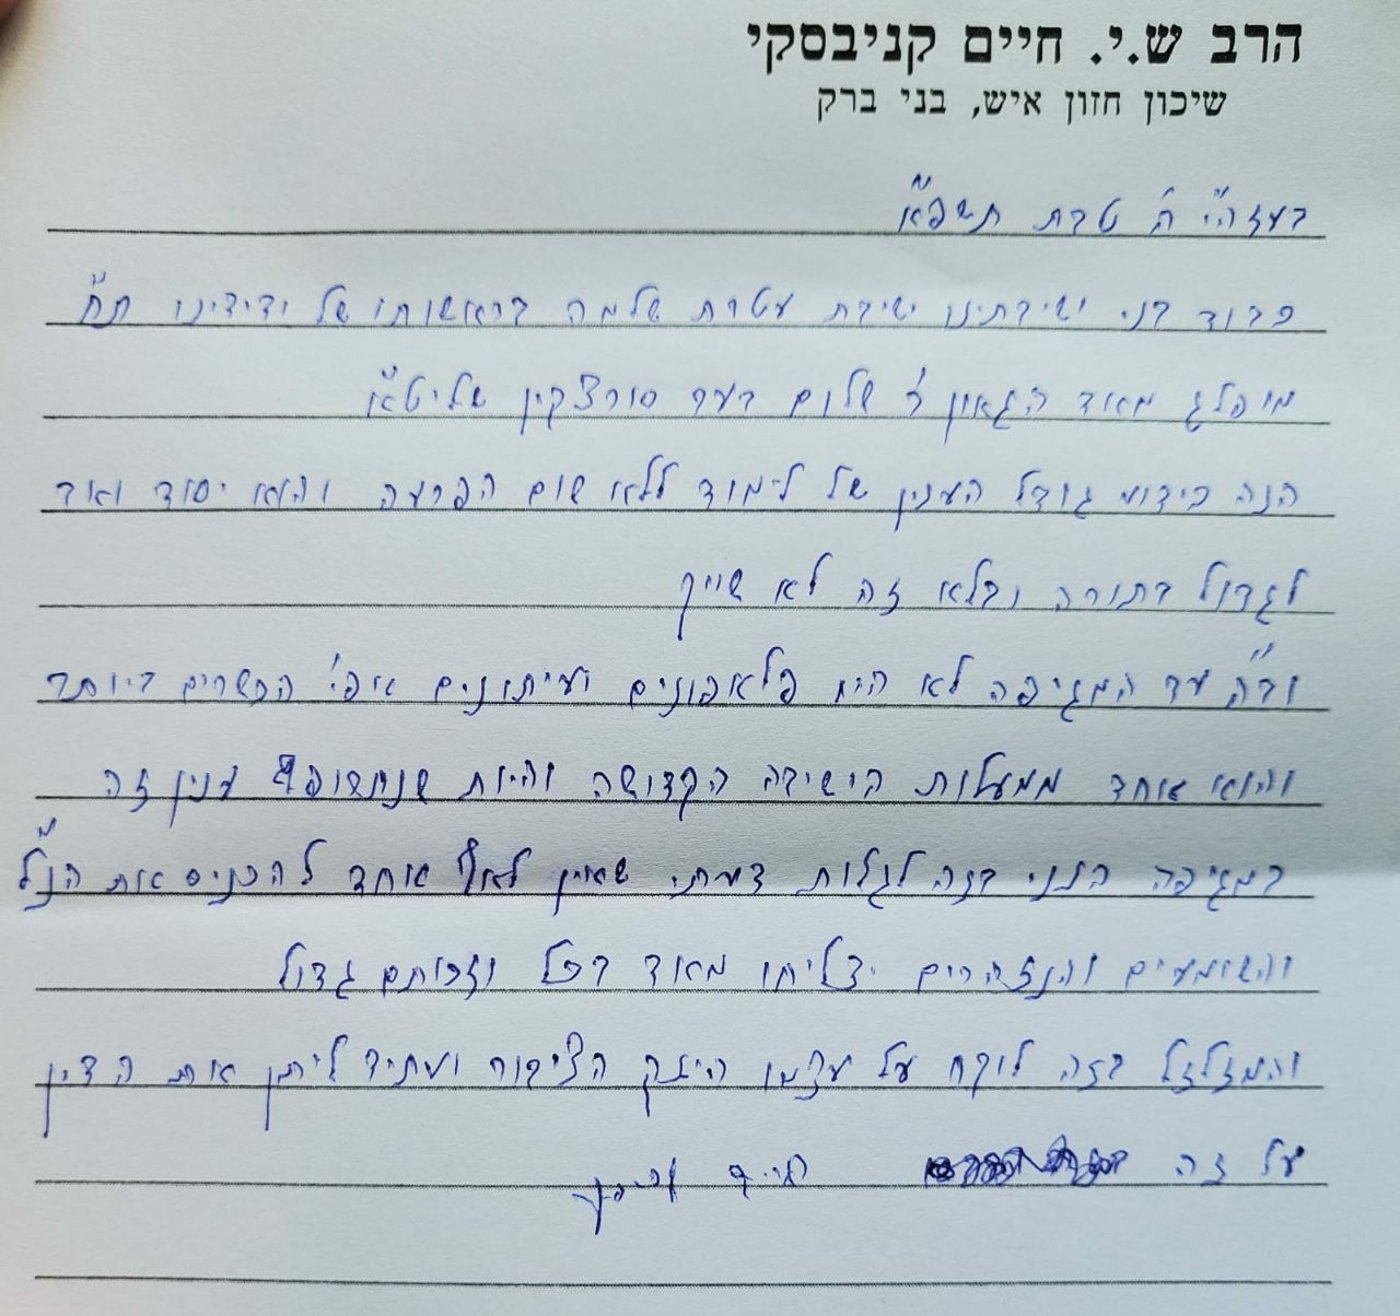 הרב ש.י. חיים קניבסקי
שיכון חזון איש, בני ברק
בעזהי"ת ה' טבת תשפ"א
כבוד בני ישיבתינו ישיבת עטרת שלמה בראשותו של ידידינו ת"ח
מופלג מאוד הגאון ר' שלום בער סורוצקין שליט"א
הנה כידוע גודל הענין של לימוד ללא שום הפרעה והוא יסוד ואור
לגדול בתורה ובלא זה לא שייך
וב"ה עד המגיפה לא היו פלאפונים ועיתונים אפי' הכשרים ביותר
והוא אחד ממעלות הישיבה הקדושה והיות שנתרופף ענין זה
במגיפה הנני בזה לגלות דעתי שאין לאף אחד להכניס את הנ"ל
והשומעים והנזהרים יצליחו מאוד בכל וזכותם גדול
והמזלזל בזה לוקח על עצמו היזק הציבור ועתיד ליתן את הדין
על זה חיים קניבסקי